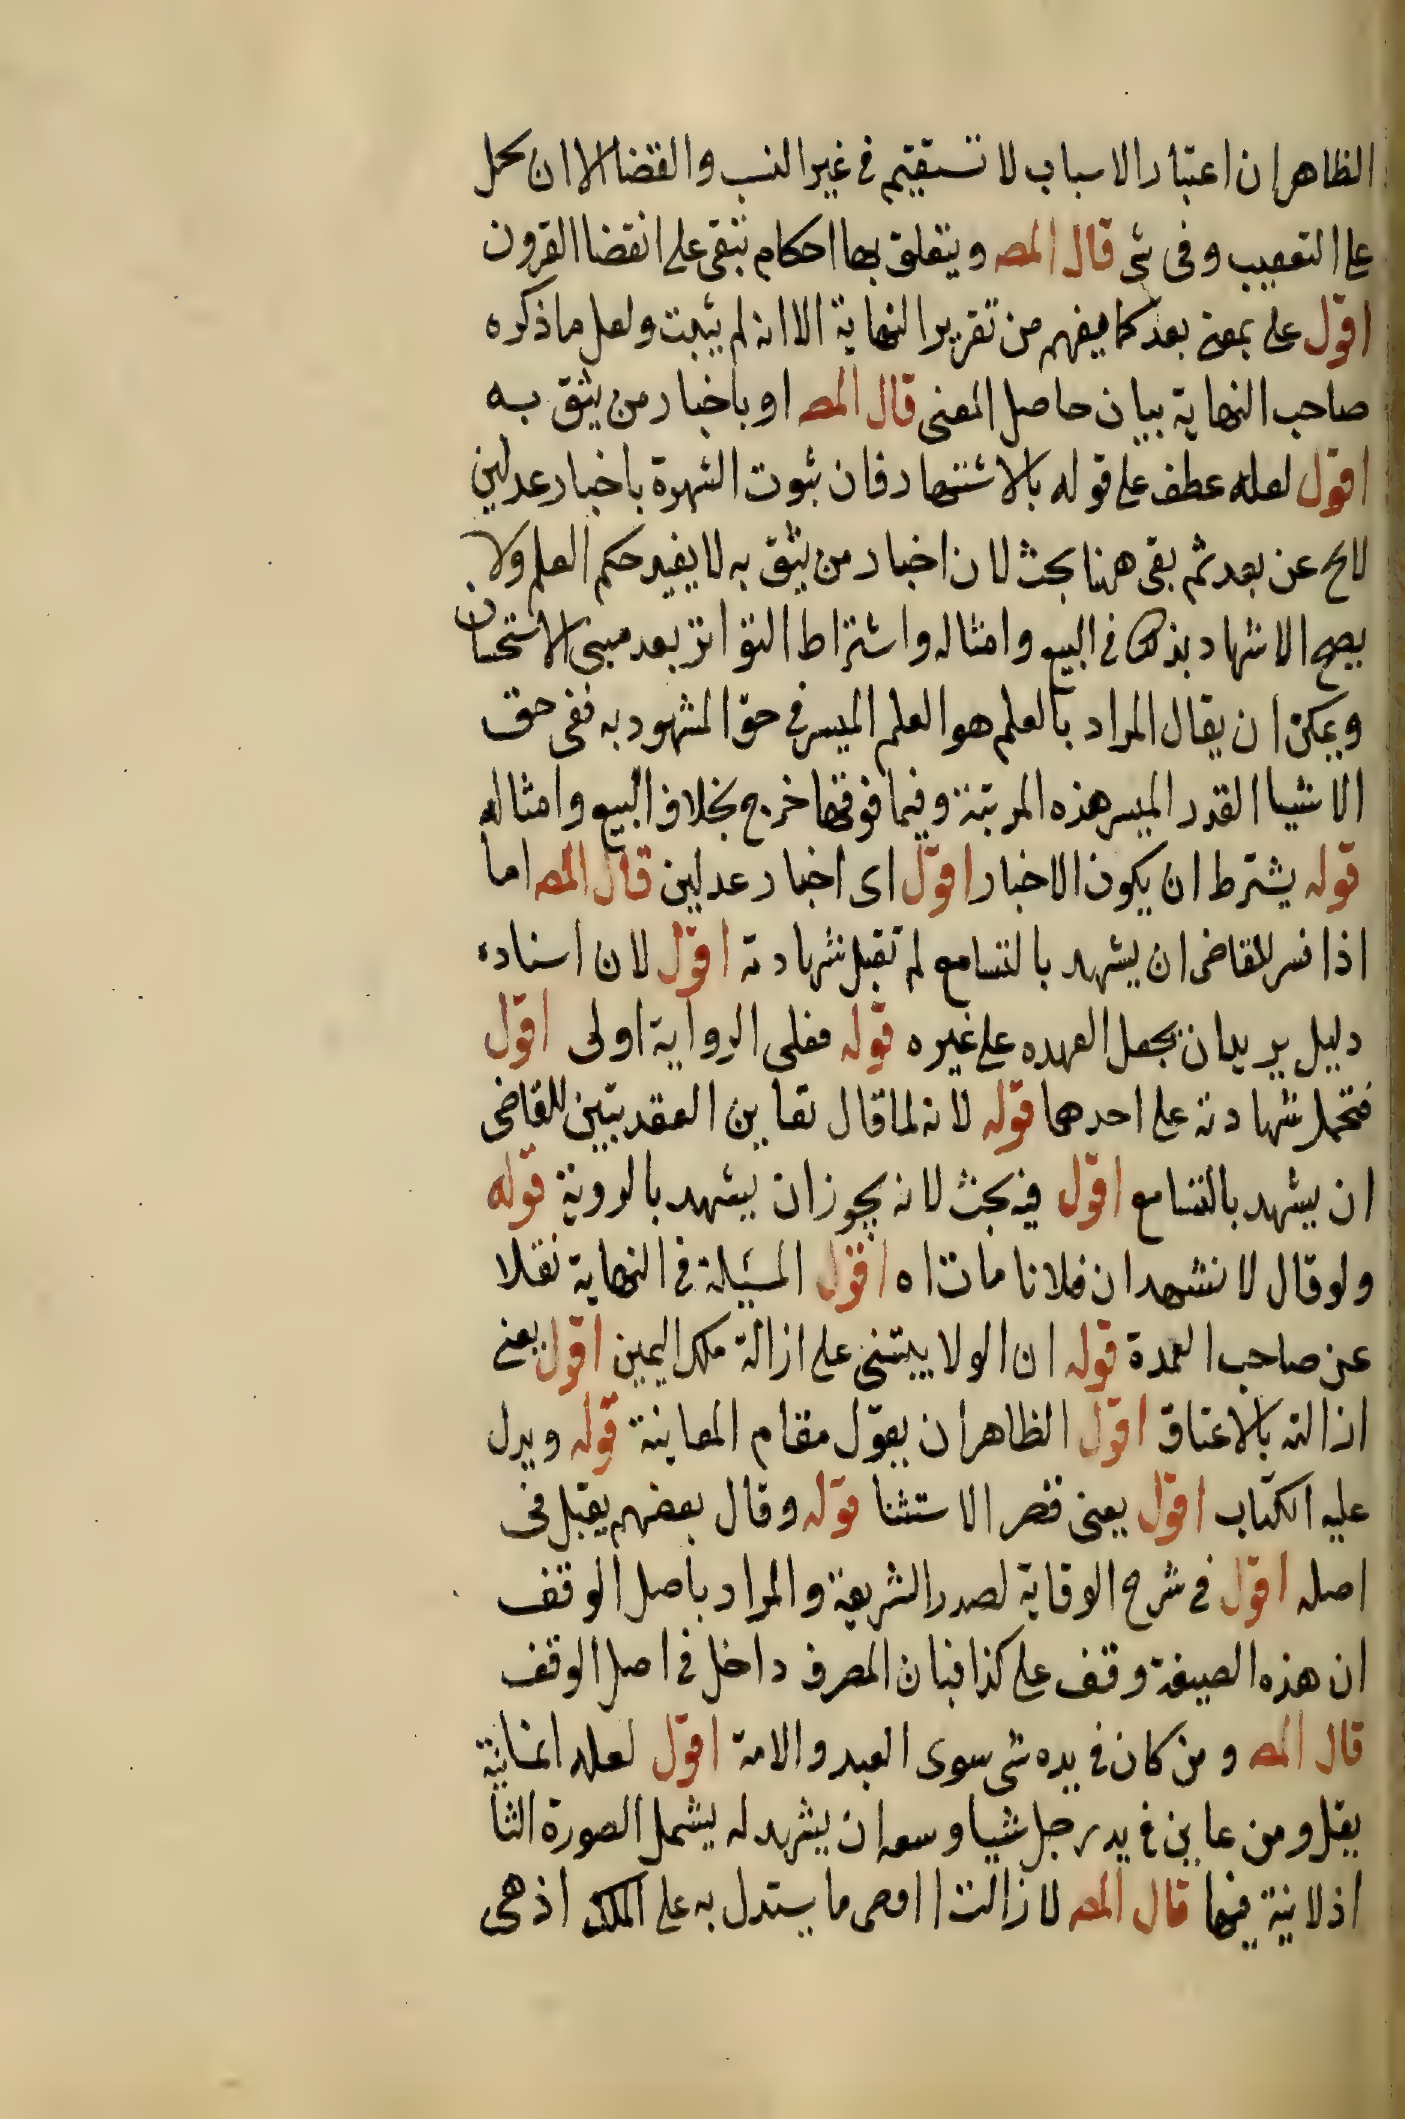 الظاهر ان اعتبار الاسباب لا تستقيم فى غير النسب والقضا الا ان يحمل
على التعقيب وفى شى قال المصـ ويتعلق بها احكام تبقى على انقضا القرون
اقول على بمعنى بعد كما يفهم من تقرير النهاية الا انه لم يثبت ولعل ما ذكره
صاحب النهاية بيان حاصل المعنى قال المصـ او باخبار من يثق به
اقول لعله عطف على قوله بالاشتهار فان ثبوت الشهرة باخبار عدلين
لايح عن بعد ثم بقى ههنا بحث لان اخبار من يثق به لا يفيد حكم العلم ولا
يصح الاشهاد بذلك فى البيع وامثاله واشتراط التواتر بعد مبنى الاستحسان
ويمكن ان يقال المراد بالعلم هو العلم الميسر فى حق المشهود به ففى حق
الاشيا القدر الميسر هذه المرتبة وفيما فوقها خرج بخلاف البيع وامثاله
قوله يشترط ان يكون الاخبار اقول اى اخبار عدلين قال المصـ اما
اذا فسر للقاضى ان يشهد بالتسامع لم تقبل شهادته اقول لان اسناده
دليل يريد ان يجعل العهده على غيره قوله فعلى الرواية اولى اقول
فتحمل شهادته على احدهما قوله لانه لما قال تعاين العقد يتبين للقاضى
ان يشهد بالتسامع اقول فيه بحث لانه يجوز ان يشهد بالروية قوله
ولو قال لا نشهد ان فلانا مات اه اقول المسيلة فى النهاية نقلا
عن صاحب العمدة قوله ان الولا يبتنى على ازالة ملك اليمين اقول يعنى
ازالته بالاعتاق اقول الظاهر ان يقول مقام المعاينة قوله ويدل
عليه الكتاب اقول يعنى قصر الاستثنا قوله وقال بعضهم يقبل فى
اصله اقول فى شرح الوقاية لصدر الشريعة والمراد باصل الوقف
ان هذه الصيغة وقف على كذا فبان المصرف داخل فى اصل الوقف
قال المصـ ومن كان فى يده شى سوى العبد والامة اقول لعله
يقل ومن عاين فى يد رجل شيا وسعه ان يشهد له ليشمل الصورة الثا
اذ لا فيها قال المصـ لا زالت اقصى ما يستدل به على الملك اذ هى